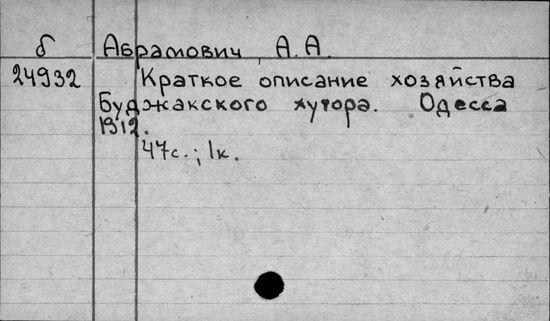 б Абрамович, А. А.
24932 Краткое описание хозяйства
Буджакского хутора. Одесса
1912.
47с.; 1к.